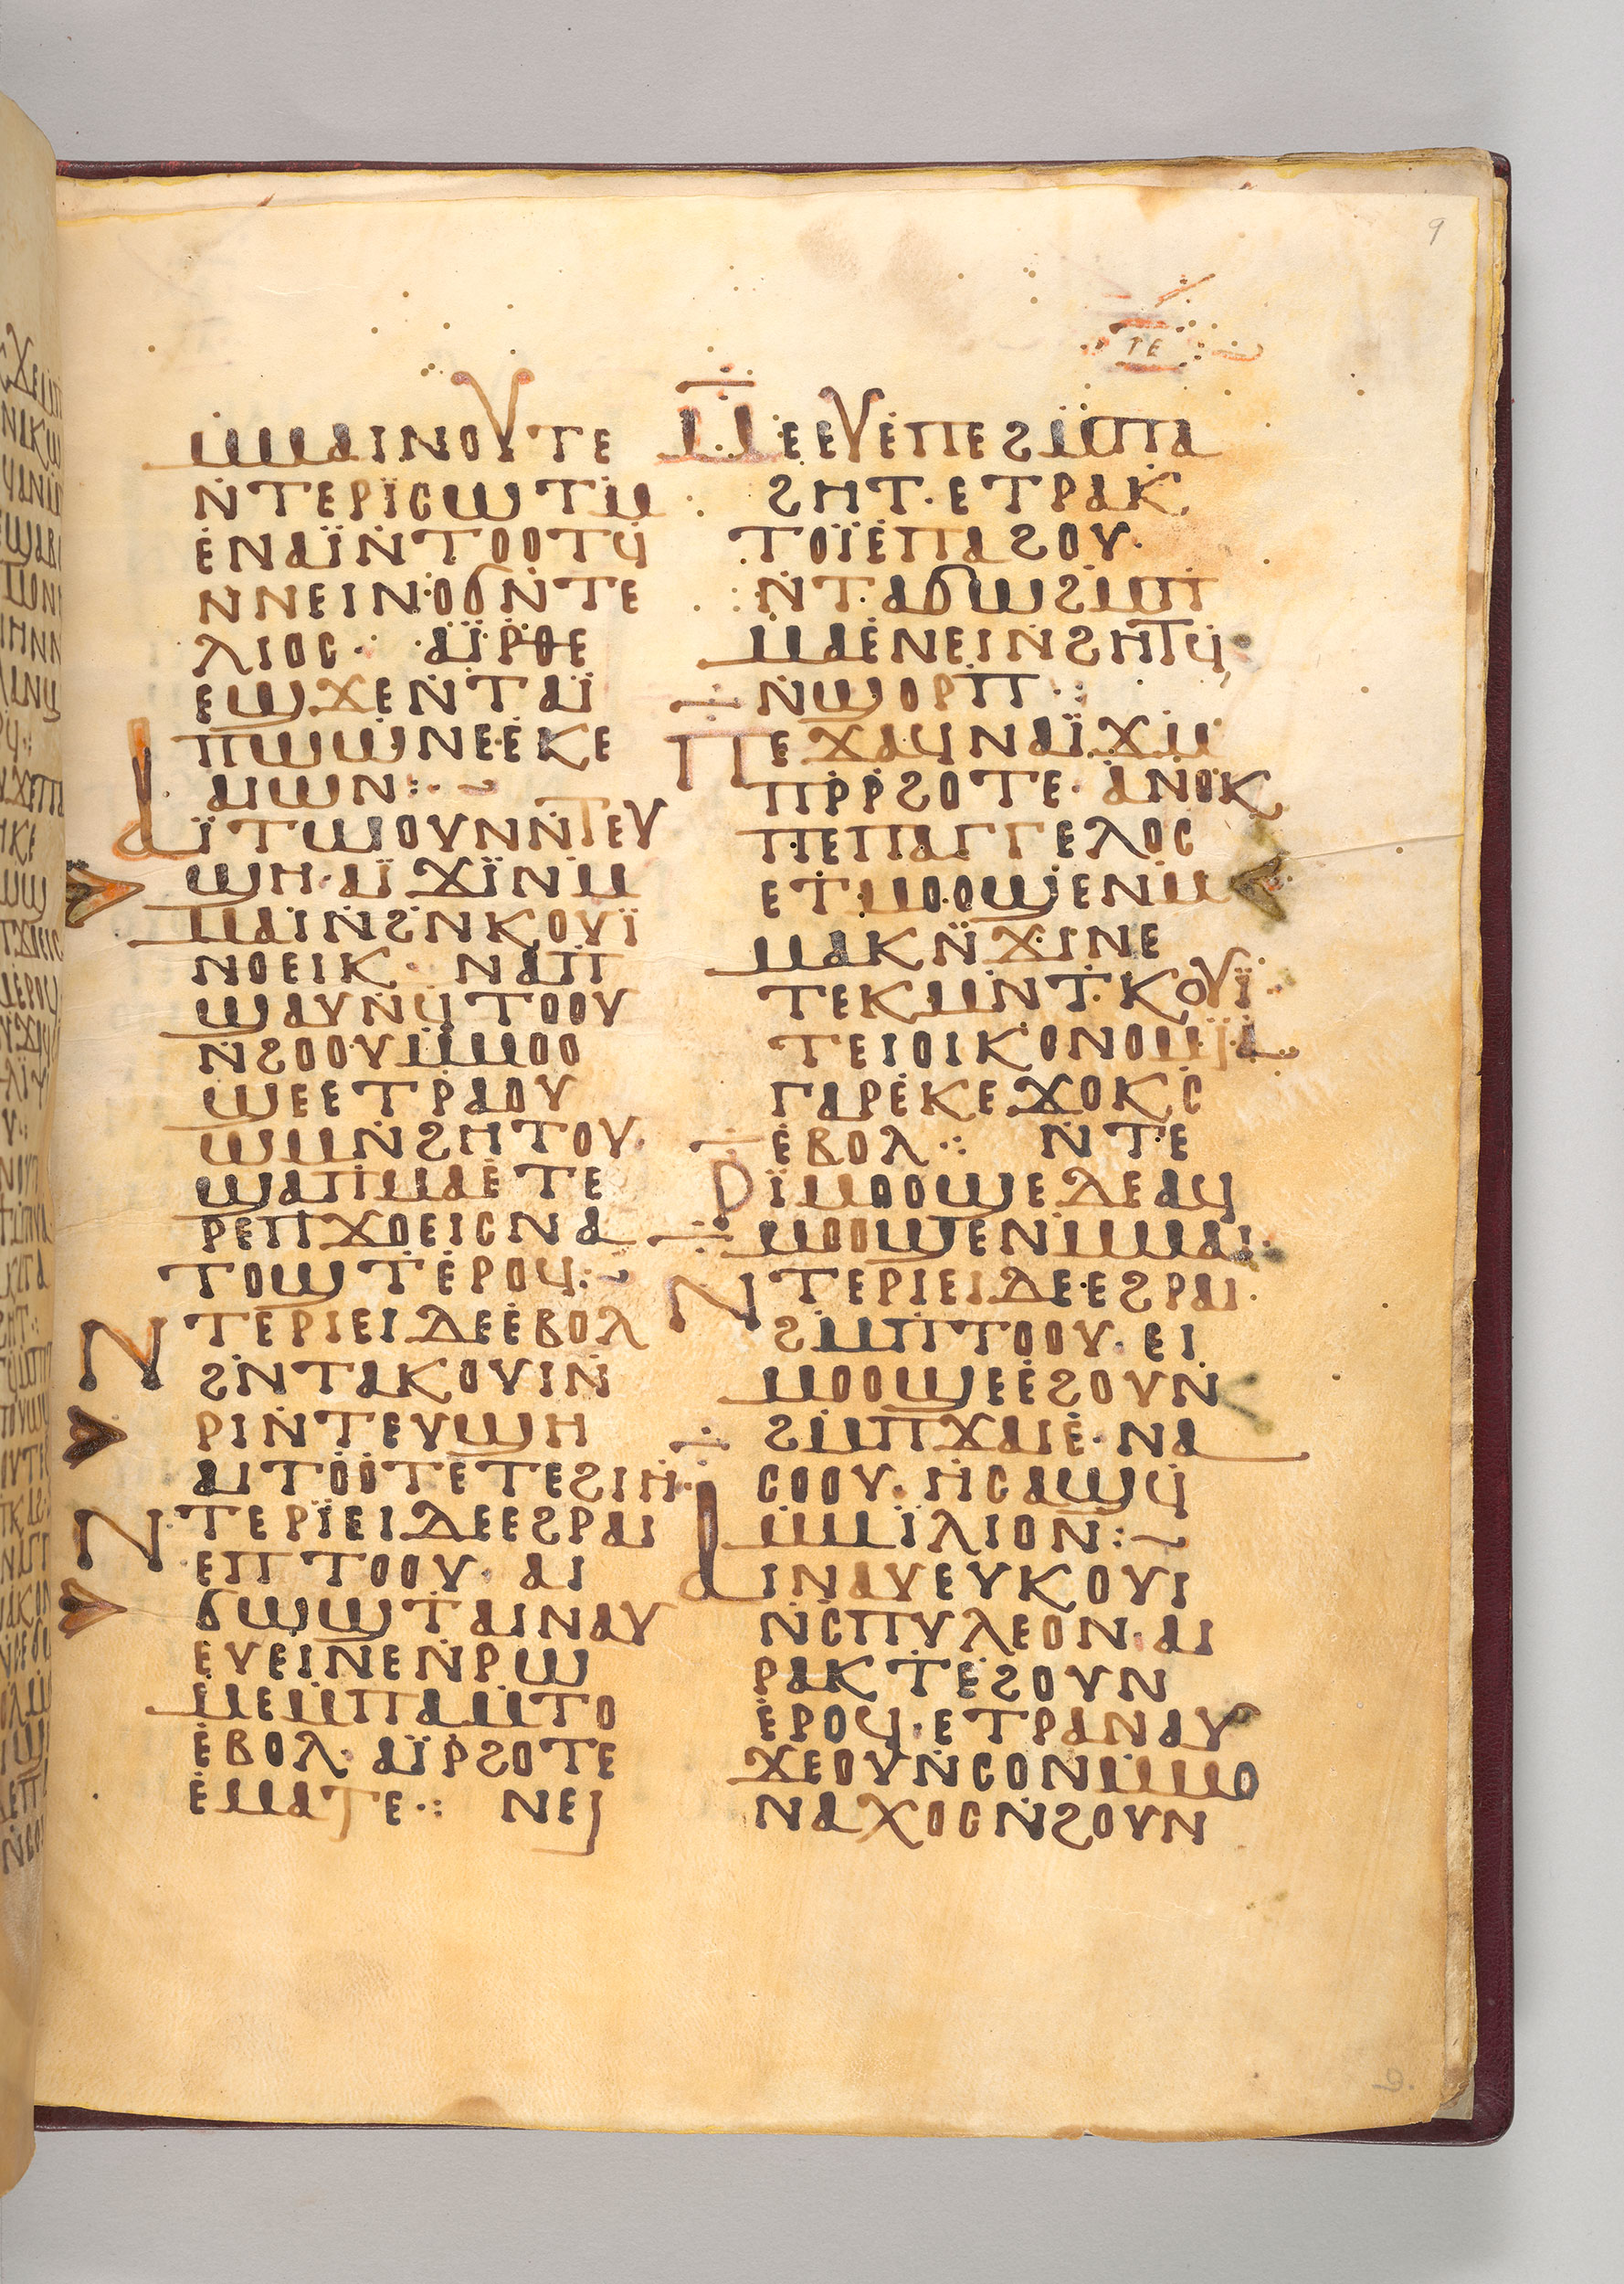 9
ⲧⲉ
ⲙⲙⲁⲓⲛⲟⲩⲧⲉ
ⲛ̇ⲧⲉⲣⲓ̈ⲥⲱⲧⲙ
ⲉ̇ⲛⲁⲓ̈ⲛ̇ⲧⲟⲟⲧϥ
ⲛⲛⲉⲓⲛ·ⲟϭⲛ̇ⲧⲉ
ⲗⲓⲟⲥ· ⲁⲓ̈ⲣ̇ⲑⲉ
ⲉϣϫⲉⲛ̇ⲧⲁⲓ̈
ⲡⲱⲱⲛⲉ·ⲉ̇ⲕⲉ
ⲁⲓⲱⲛ:·~
ⲁⲓ̈ⲧⲱⲟⲩⲛⲛ̇ⲧⲉⲩ
ϣⲏ·ⲁⲓ̈ϫⲓ̈ⲛⲙ
ⲙⲁⲓ̈ⲛ̇ϩⲛ̇ⲕⲟⲩⲓ̈
ⲛⲟⲉⲓⲕ· ⲛⲁⲡ
ϣⲁⲩⲛ̇ϥⲧⲟⲟⲩ
ⲛ̇ϩⲟⲟⲩⲙ̇ⲙⲟⲟ
ϣⲉⲉⲧⲣⲁⲟⲩ
ⲱⲙⲛ̇ϩⲏⲧⲟⲩ·
ϣⲁⲡⲙⲁⲉ̇ⲧⲉ
ⲣⲉⲡϫⲟⲉⲓⲥⲛⲁ
ⲧⲟϣⲧ̇ⲉ̇ⲣⲟϥ:~
ⲛⲧⲉⲣⲓⲉⲓⲇⲉⲉ̇ⲃⲟⲗ
ϩⲛ̇ⲧⲁⲕⲟⲩⲓⲛ̇
ⲣⲓⲛ̇ⲧⲉⲩϣⲏ
ⲁⲓⲧⲟ̇ⲟ̇ⲧⲉ̇ⲧⲉϩⲓⲏ·
ⲛⲧⲉⲣⲓ̈ⲉⲓⲇⲉⲉϩⲣⲁⲓ
ⲉⲡⲧⲟⲟⲩ· ⲁⲓ
ϭⲱϣⲧ̇ⲁⲓⲛⲁⲩ
ⲉⲩⲉⲓⲛⲉⲛ̇ⲣⲱ
ⲙⲉⲙ̇ⲡⲁⲙ̇ⲧⲟ
ⲉ̇ⲃⲟⲗ·ⲁⲓ̈ⲣ̇ϩⲟⲧⲉ
ⲉ̇ⲙⲁⲧⲉ·: ⲛⲉⲓ
ⲙⲉⲉⲩⲉ̇ⲡⲉϩⲙ̈ⲡⲁ
ϩⲏⲧ·ⲉⲧⲣⲁⲕ
ⲧⲟⲓ̈ⲉ̇ⲡⲁϩⲟⲩ·
ⲛ̇ⲧ·ⲁϭⲱϩⲙ̇ⲡ
ⲙⲁⲉ̇ⲛⲉⲓⲛ̇ϩⲏⲧϥ̇
ⲛ̇ϣⲟⲣⲡ̇·:
ⲡⲉϫⲁϥⲛⲁⲓ̈ϫⲙ
ⲡⲣ̇ⲣ̇ϩⲟⲧⲉ·ⲁⲛⲟⲕ
ⲡⲉⲡⲁⲅⲅⲉⲗⲟⲥ
ⲉⲧⲙⲟ·ⲟϣⲉⲛⲙ̇
ⲙⲁⲕⲛ̈ϫ·ⲓⲛⲉ
ⲧⲉⲕⲙⲛ̇ⲧ·ⲕⲟⲩⲓ̈·
ⲧⲉⲓⲟⲓⲕⲟⲛⲟⲙⲓ̈ⲁ
ⲅⲁⲣⲉ̇ⲕⲉϫⲟⲕⲥ
ⲉ̇ⲃⲟⲗ·: ⲛ̇ⲧⲉ
ⲣⲓ̈ⲙⲟⲟϣⲉⲇⲉⲁϥ
ⲙⲟⲟϣⲉⲛⲙ̇ⲙⲁⲓ·
ⲛⲧⲉⲣⲓⲉⲓⲇⲉ·ⲉϩⲣⲁⲓ·
ϩⲙ̇ⲡⲧⲟⲟⲩ·ⲉⲓ
ⲙⲟⲟϣⲉⲉ̇ϩⲟⲩⲛ
ϩⲙ̇ⲡϫⲁⲓⲉ̇·ⲛⲁ
ⲥⲟⲟⲩ·ⲏ̇ⲥⲁϣϥ̇
ⲙⲙⲓ̈ⲗⲓⲟⲛ:~
ⲁⲓⲛⲁⲩⲉⲩⲕⲟⲩⲓ
ⲛ̇ⲥⲡⲩⲗⲉⲟⲛ·ⲁⲓ
ⲣⲁⲕⲧ̇ⲉ̇ϩⲟⲩⲛ
ⲉ̇ⲣⲟϥ·ⲉⲧⲣⲁⲛⲁⲩ
ϫⲉⲟⲩⲛ̇ⲥⲟⲛⲙ̇ⲙⲟ
ⲛⲁⲭⲟⲥⲛ̇ϩⲟⲩⲛ